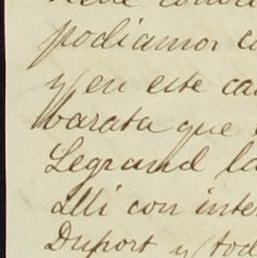 podiamos co
y en este ca
barata que
Legrand la
Alli con inte
Duport y tod